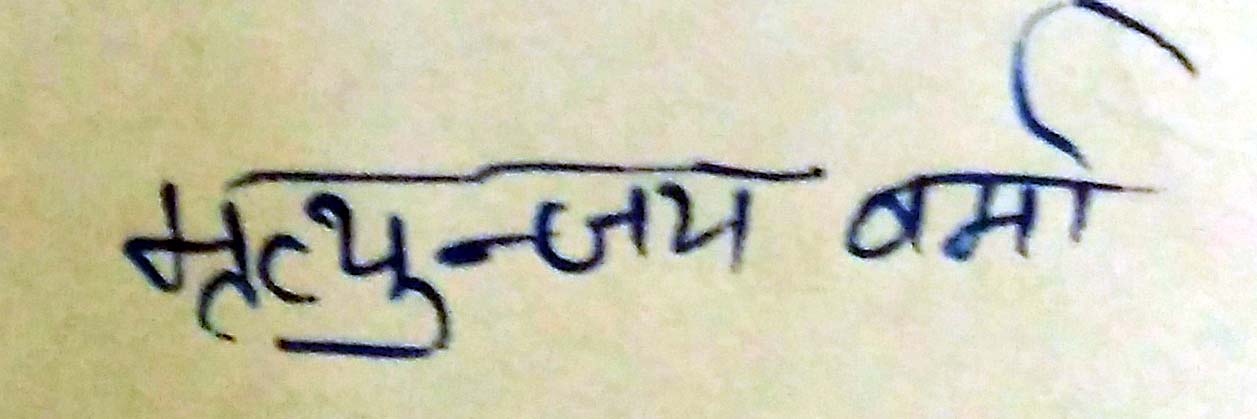 मृत्युन्जय वर्मा